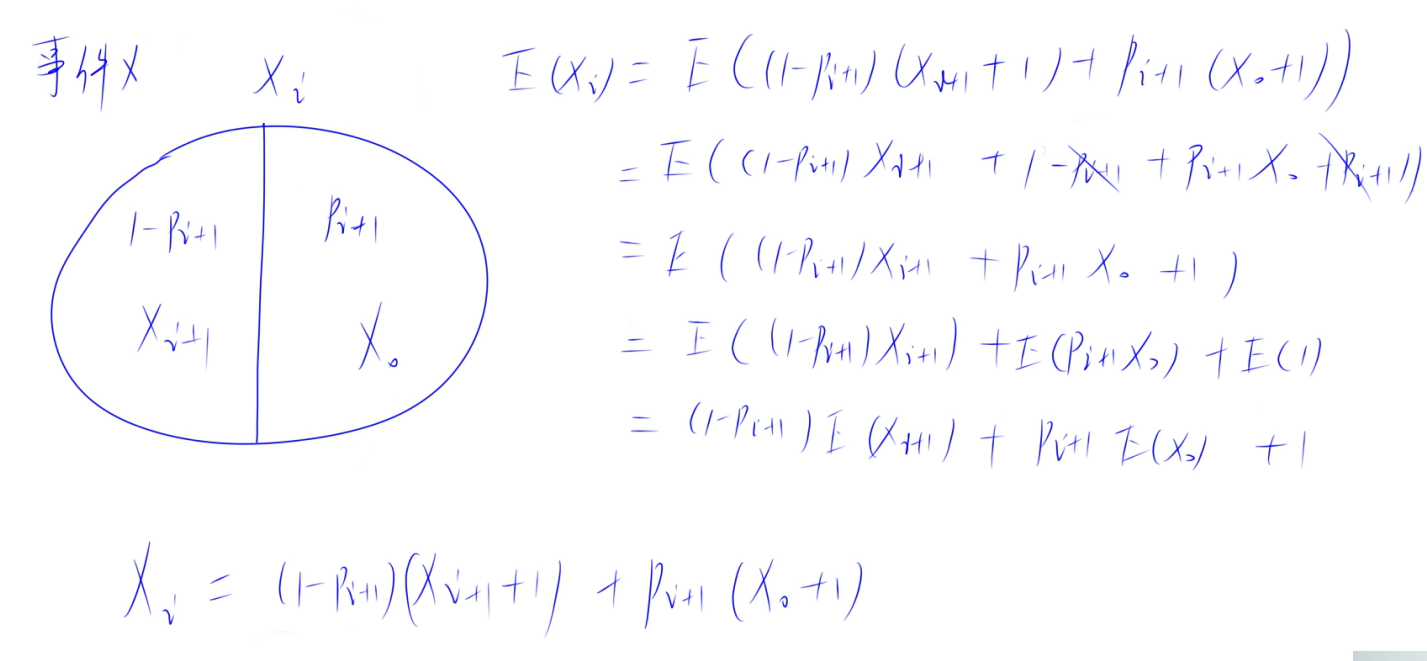 事件X
X_i
E(X_i) = E((1-p_{i+1})(X_{i+1}+1)+p_{i+1}(X_0+1))
= E((1-p_{i+1})X_{i+1} + 1-p_{i+1} + p_{i+1}X_0 + p_{i+1})
1-p_{i+1}
p_{i+1}
= E((1-p_{i+1})X_{i+1} + p_{i+1}X_0 + 1)
X_{i+1}
X_0
= E((1-p_{i+1})X_{i+1}) + E(p_{i+1}X_0) + E(1)
= (1-p_{i+1})E(X_{i+1}) + p_{i+1}E(X_0) + 1
X_i = (1-p_{i+1})(X_{i+1}+1) + p_{i+1}(X_0+1)